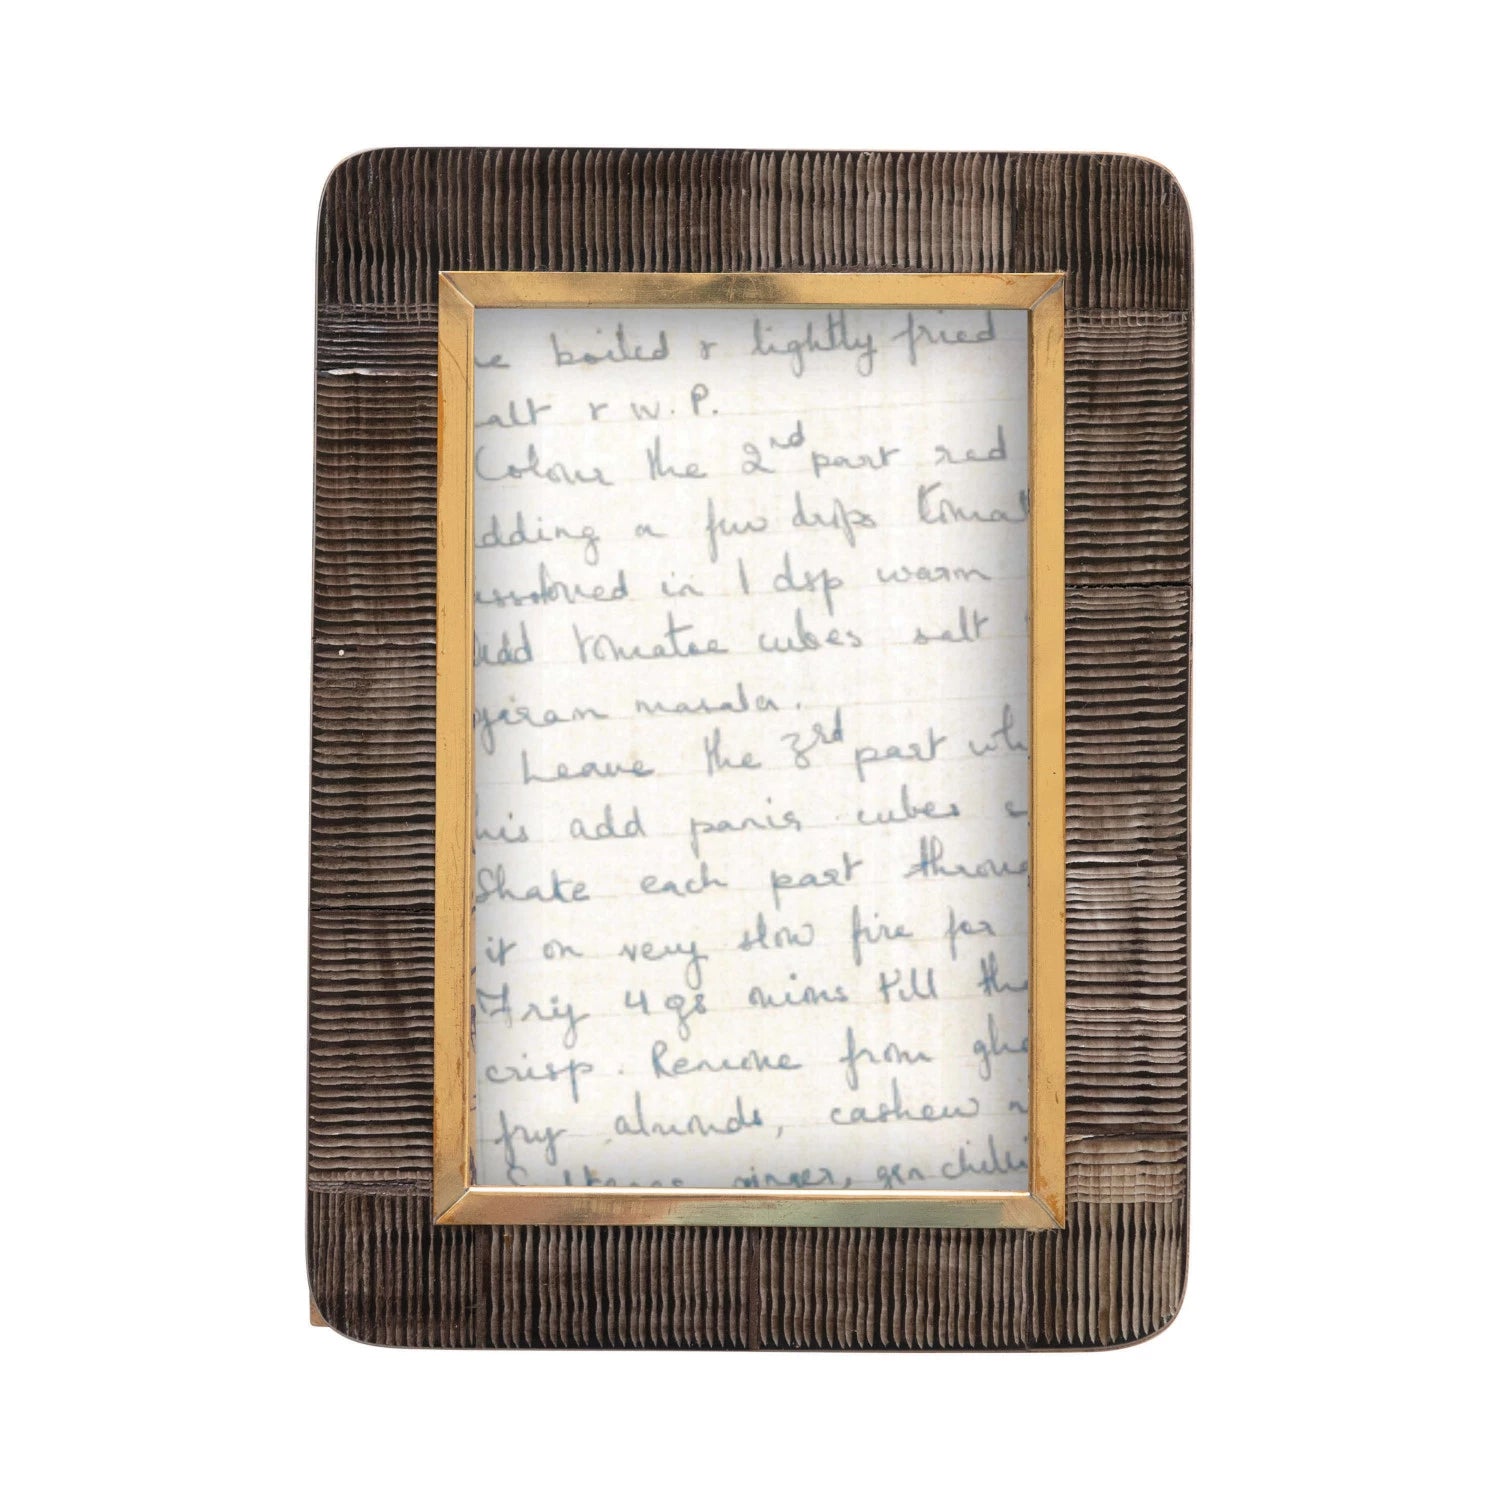 e boiled & lightly fried
alt & W.P.
Colour the 2nd part red
dding a few drops tomat
issolved in 1 dsp warm
Add tomatoe cubes salt
giram masala.
Leave the 3rd part wh
his add panir cubes
Shake each part throug
it on very slow fire for
Fry 4 gs onions till the
crisp. Remove from ghe
fry almonds, cashew n
Sultanas ginger, grn chilli